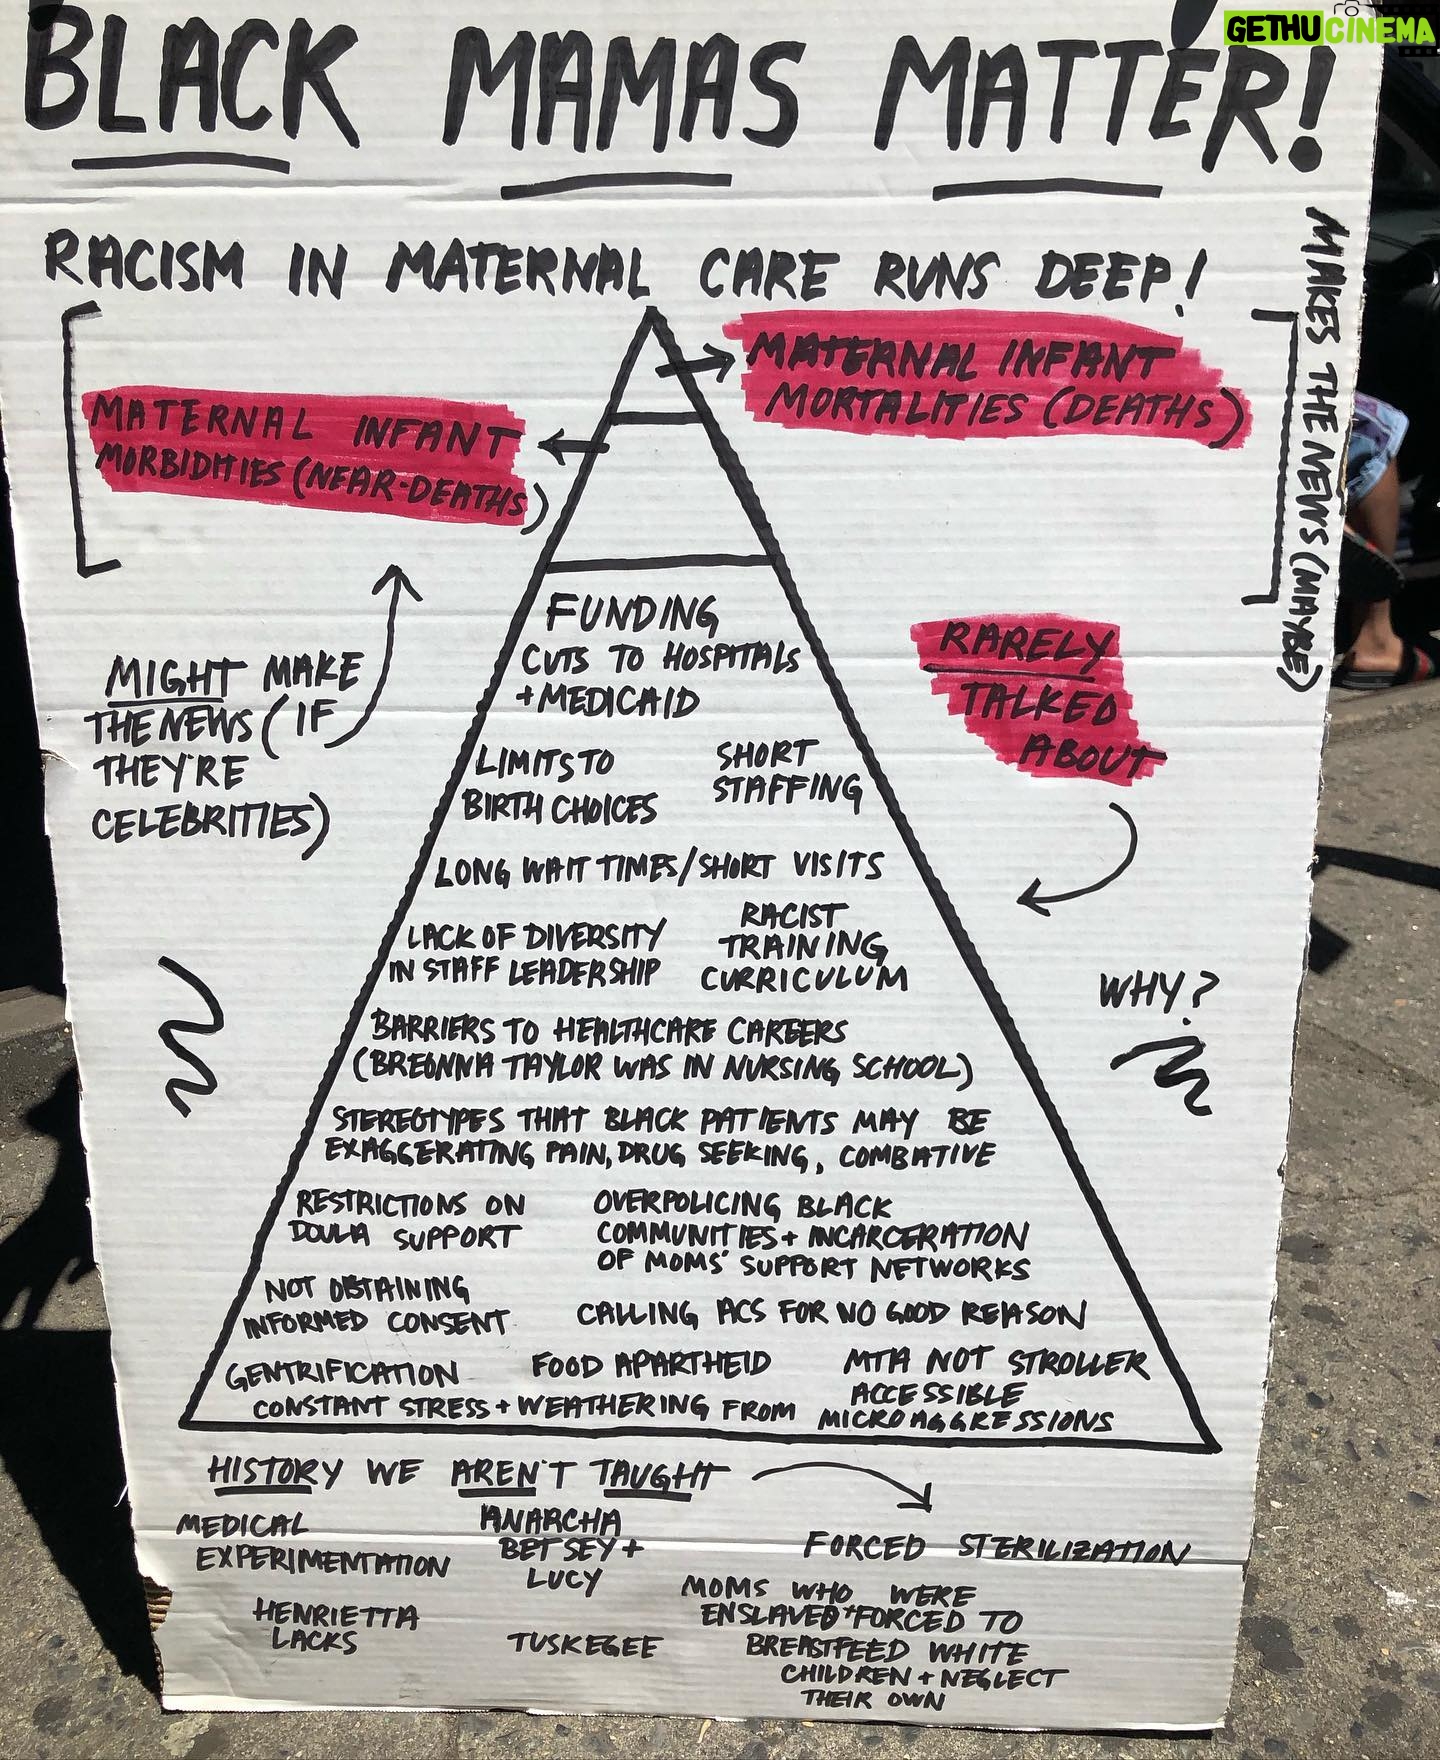 GETHUCINEMA
BLACK MAMAS MATTER!
RACISM IN MATERNAL CARE RUNS DEEP!
MAKES THE NEWS (MAYBE)
MATERNAL INFANT
MORTALITIES (DEATHS)
MATERNAL INFANT
MORBIDITIES (NEAR-DEATHS)
MIGHT MAKE
THE NEWS (IF
THEY'RE
CELEBRITIES)
RARELY
TALKED
ABOUT
WHY?
FUNDING
CUTS TO HOSPITALS
+ MEDICAID
LIMITS TO
BIRTH CHOICES
SHORT
STAFFING
LONG WAIT TIMES/SHORT VISITS
LACK OF DIVERSITY
IN STAFF LEADERSHIP
RACIST
TRAINING
CURRICULUM
BARRIERS TO HEALTHCARE CAREERS
(BREONNA TAYLOR WAS IN NURSING SCHOOL)
STEREOTYPES THAT BLACK PATIENTS MAY BE
EXAGGERATING PAIN, DRUG SEEKING, COMBATIVE
RESTRICTIONS ON
DOULA SUPPORT
OVERPOLICING BLACK
COMMUNITIES + INCARCERATION
OF MOMS' SUPPORT NETWORKS
NOT OBTAINING
INFORMED CONSENT
CALLING ACS FOR NO GOOD REASON
GENTRIFICATION
FOOD APARTHEID
MTA NOT STROLLER
ACCESSIBLE
CONSTANT STRESS + WEATHERING FROM MICROAGGRESSIONS
HISTORY WE AREN'T TAUGHT
MEDICAL
EXPERIMENTATION
ANARCHA
BETSEY +
LUCY
FORCED STERILIZATION
HENRIETTA
LACKS
TUSKEGEE
MOMS WHO WERE
ENSLAVED + FORCED TO
BREASTFEED WHITE
CHILDREN + NEGLECT
THEIR OWN